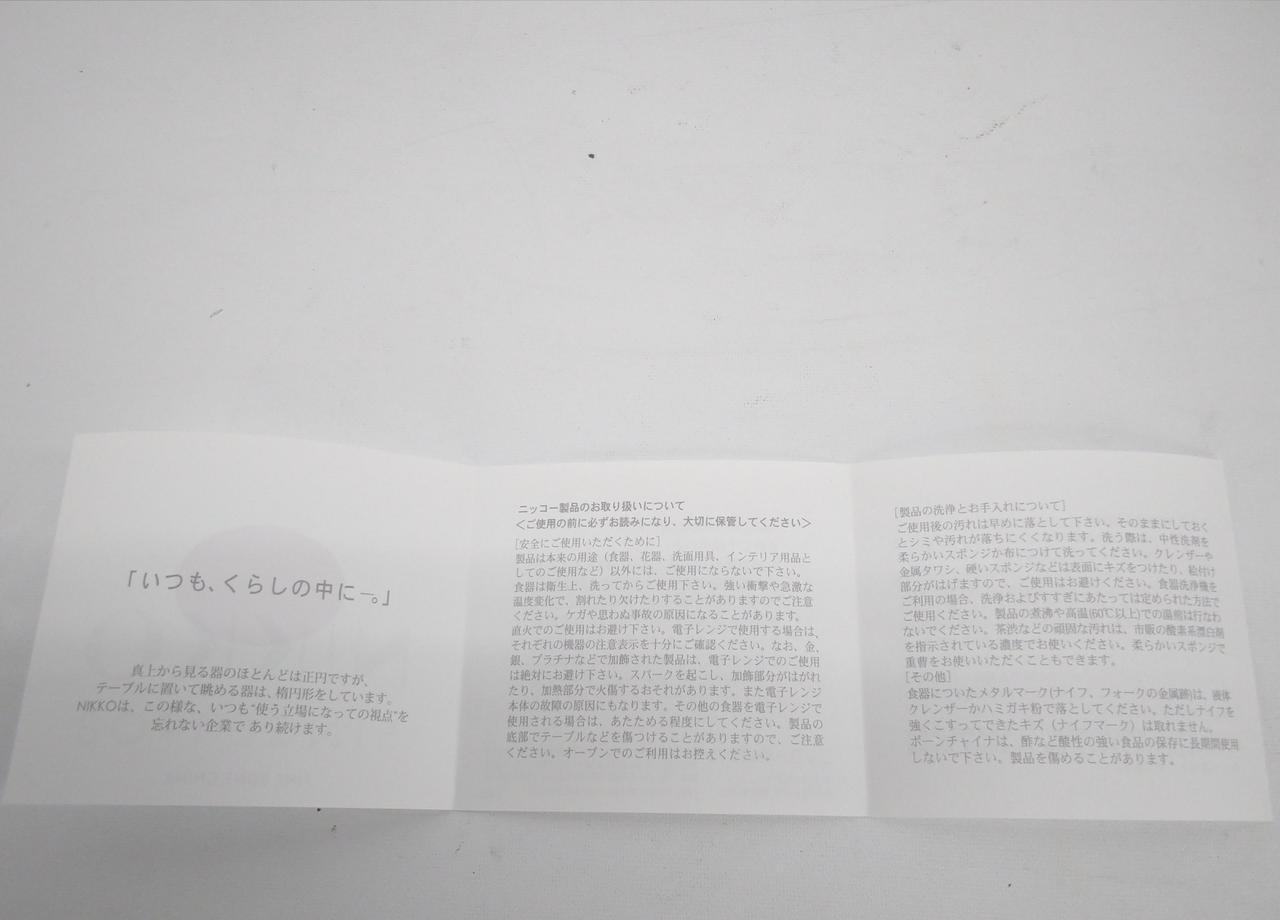 「いつも、くらしの中に─。」
真上から見る器のほとんどは正円ですが、
テーブルに置いて眺める器は、楕円形をしています。
NIKKOは、この様な、いつも“使う立場になっての視点”を
忘れない企業で あり続けます。
ニッコー製品のお取り扱いについて
＜ご使用の前に必ずお読みになり、大切に保管してください＞
[安全にご使用いただくために]
製品は本来の用途（食器、花器、洗面用具、インテリア用品と
してのご使用など）以外には、ご使用にならないで下さい。
食器は衛生上、洗ってからご使用下さい。強い衝撃や急激な
温度変化で、割れたり欠けたりすることがありますのでご注意
ください。ケガや思わぬ事故の原因になることがあります。
直火でのご使用はお避け下さい。電子レンジで使用する場合は、
それぞれの機器の注意表示を十分にご確認ください。なお、金、
銀、プラチナなどで加飾された製品は、電子レンジでのご使用
は絶対にお避け下さい。スパークを起こし、加飾部分がはがれ
たり、加熱部分で火傷するおそれがあります。また電子レンジ
本体の故障の原因にもなります。その他の食器を電子レンジで
使用される場合は、あたためる程度にしてください。製品の
底部でテーブルなどを傷つけることがありますので、ご注意
ください。オーブンでのご利用はお控えください。
[製品の洗浄とお手入れについて]
ご使用後の汚れは早めに落として下さい。そのままにしておく
とシミや汚れが落ちにくくなります。洗う際は、中性洗剤を
柔らかいスポンジか布につけて洗ってください。クレンザーや
金属タワシ、硬いスポンジなどは表面にキズをつけたり、絵付け
部分がはげますので、ご使用はお避けください。食器洗浄機を
ご利用の場合、洗浄およびすすぎにあたっては定められた方法で
ご使用ください。製品の煮沸や高温(60℃以上)での湯煎は行なわ
ないでください。茶渋などの頑固な汚れは、市販の酸素系漂白剤
を指示されている濃度でお使いください。柔らかいスポンジで
重曹をお使いいただくこともできます。
[その他]
食器についたメタルマーク(ナイフ、フォークの金属跡)は、液体
クレンザーかハミガキ粉で落としてください。ただしナイフを
強くこすってできたキズ（ナイフマーク）は取れません。
ボーンチャイナは、酢など酸性の強い食品の保存に長期間使用
しないで下さい。製品を傷めることがあります。